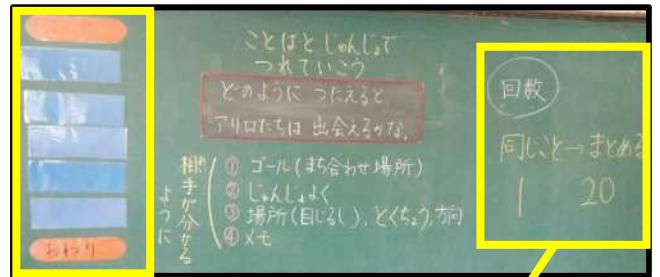 ことばとじゅんじょで
つれていこう
どのように つたえると
アリロたちは 出会えるかな。
相手が分かる
ように
① ゴール(まち合わせ場所)
② じゅんじょよく
③ 場所(目じるし)、とくちょう、方向
④ メモ
回数
同じこと→まとめる
1 20
おわり